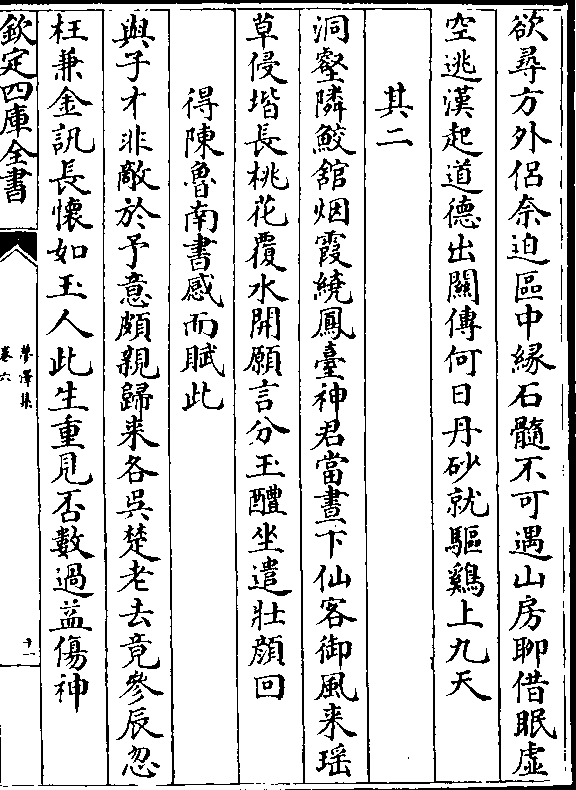 欲尋方外侣奈迫區中緣石髓不可遇山房聊借眠虚
空逃漢起道德出關傳何日丹砂就驅鷄上九天
其二
洞壑隣鮫舘烟霞繞鳳臺神君當晝下仙客御風来瑶
草侵堦長桃花覆水開願言分玉醴坐遣壯顔回
得陳魯南書感而賦此
與子才非敵於予意頗親歸来各吳楚老去竟參辰忽
枉兼金訊長懷如玉人此生重見否數過益傷神
欽定四庫全書
夢澤集
卷六
十一